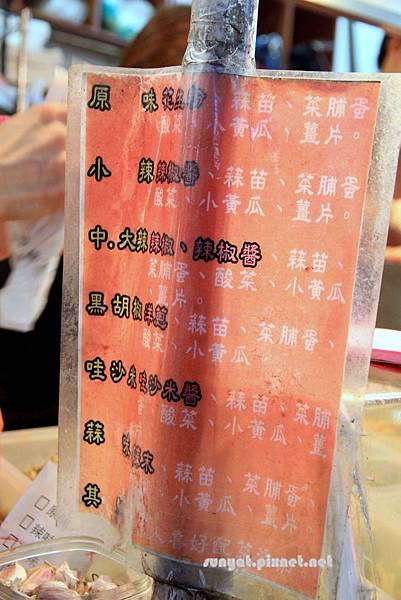 原 味 花生粉、蒜苗、菜脯蛋
酸菜、小黃瓜、薑片。
小 辣 辣椒醬、蒜苗、菜脯蛋
酸菜、小黃瓜、薑片。
中.大辣 辣椒、辣椒醬、蒜苗、
菜脯蛋、酸菜、小黃瓜
、薑片。
黑胡椒 洋蔥、蒜苗、菜脯蛋、
酸菜、小黃瓜
哇沙米 哇沙米醬、蒜苗、菜脯
蛋、酸菜、小黃瓜、薑
蒜 味、蒜苗、菜脯蛋、
、小黃瓜、薑片。
其 人喜好配菜
sunyat.pixnet.net
辣